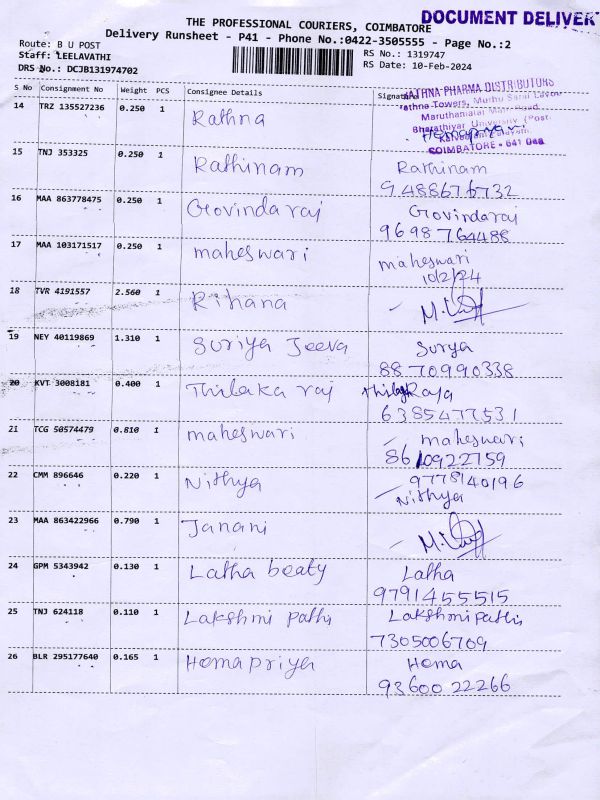 DOCUMENT DELIVER
THE PROFESSIONAL COURIERS, COIMBATORE
Delivery Runsheet - P41 - Phone No.:0422-3505555 - Page No.:2
Route: B U POST
Staff: LEELAVATHI
DRS No.: DCJB131974702
RS No.: 1319747
RS Date: 10-Feb-2024
S No Consignment No Weight PCS Consignee Details Signature
RATHNA PHARMA DISTRIBUTORS
Rathna Towers, Murhu
Maruthamalai Main Road
Bharathiyar University (Post
COIMBATORE - 641 046
14 TRZ 135527236 0.250 1 Rathna Hemapriya
15 TNJ 353325 0.250 1 Rathinam Rathinam
9488676732
16 MAA 863778475 0.250 1 Govindaraj Govindaraj
9698764488
17 MAA 103171517 0.250 1 maheswari maheswari
10/2/24
18 TVR 4191557 2.560 1 Rihana
19 NEY 40119869 1.310 1 Suriya Jeeva Surya
8870990338
20 KVT 3008181 0.400 1 Thilaka raj ThilagRaja
6385477531
21 TCG 50574479 0.810 1 maheswari maheswari
8610922759
22 CMM 896646 0.220 1 Nithya 9778140196
Nithya
23 MAA 863422966 0.790 1 Janani
24 GPM 5343942 0.130 1 Latha beaty Latha
9791455515
25 TNJ 624118 0.110 1 Lakshmi pathi Lakshmipathi
7305006709
26 BLR 295177640 0.165 1 Hemapriya Hema
93600 22266